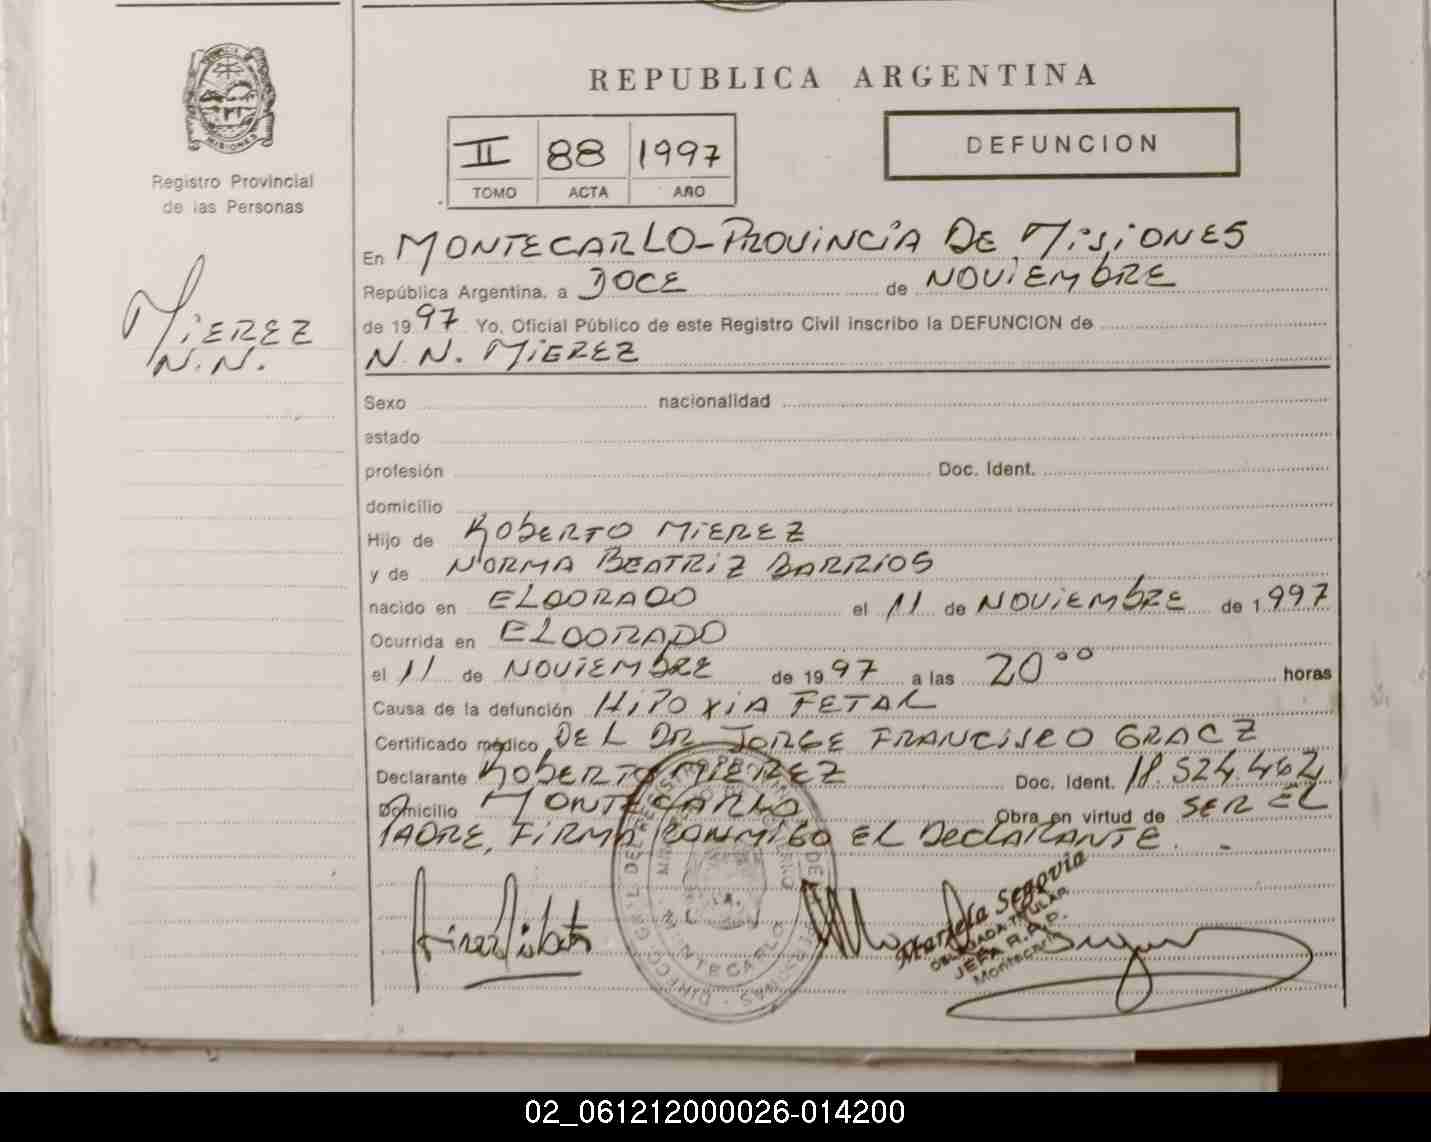 MISIONES
Registro Provincial
de las Personas
MIEREZ
N.N.
REPUBLICA ARGENTINA
II 88 1997
TOMO ACTA AÑO
DEFUNCION
En MONTECARLO-PROVINCIA DE MISIONES
República Argentina, a DOCE de NOVIEMBRE
de 1997 Yo, Oficial Público de este Registro Civil inscribo la DEFUNCION de
N.N. MIEREZ
Sexo nacionalidad
estado
profesión Doc. Ident.
domicilio
Hijo de ROBERTO MIEREZ
y de NORMA BEATRIZ BARRIOS
nacido en ELDORADO el 11 de NOVIEMBRE de 1.997
Ocurrida en ELDORADO
el 11 de NOVIEMBRE de 1997 a las 20°° horas
Causa de la defunción HIPOXIA FETAL
Certificado médico DEL DR JORGE FRANCISCO GRACZ
Declarante ROBERTO MIEREZ Doc. Ident. 18.524.462
Domicilio MONTECARLO Obra en virtud de SER EL
PADRE, FIRMA CONMIGO EL DECLARANTE. -
MONTECARLO
Mardela Segovia
DELEGADA TITULAR
JEFA R.P.P.
Montecarlo
02_061212000026-014200